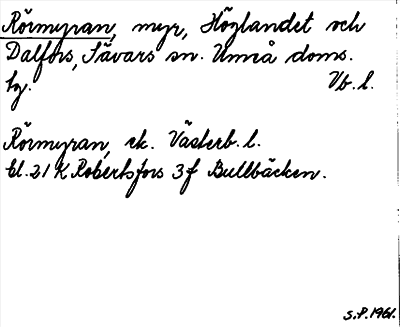 Rörmyran, myr, Höglandet och
Dalfors, Sävars sn. Umeå doms.
hg. Vb. l.
Rörmyran, ek. Västerb. l.
bl. 21 K Robertsfors 3f Bullbäcken.
S.P. 1961.